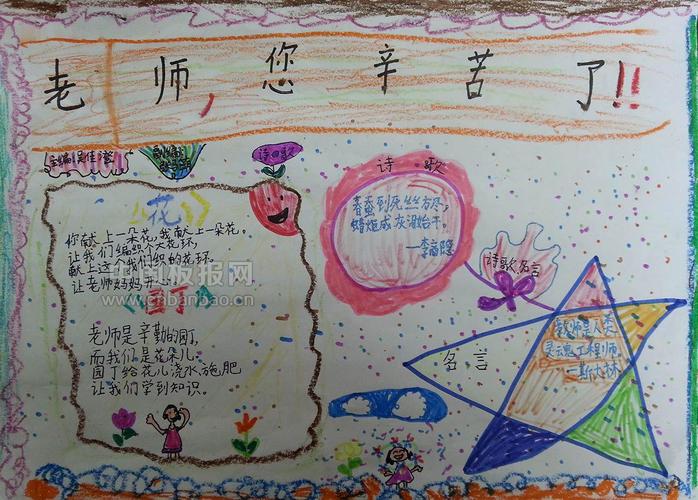 老师,您辛苦了!!
诗曰歌
诗歌
春蚕到死丝方尽,
蜡炬成灰泪始干。
—李商隐
《花》
你献上一朵花,我献上一朵花。
让我们编织个大花环,
献上这个我们织的花环。
让老师妈妈开心!
老师是辛勤的园丁,
而我们是花朵儿.
园丁给花儿浇水.施肥
让我们学到知识。
诗歌名言
名言
教师是人类
灵魂工程师.
—斯大林
中国板报网
cnbanbao.cn